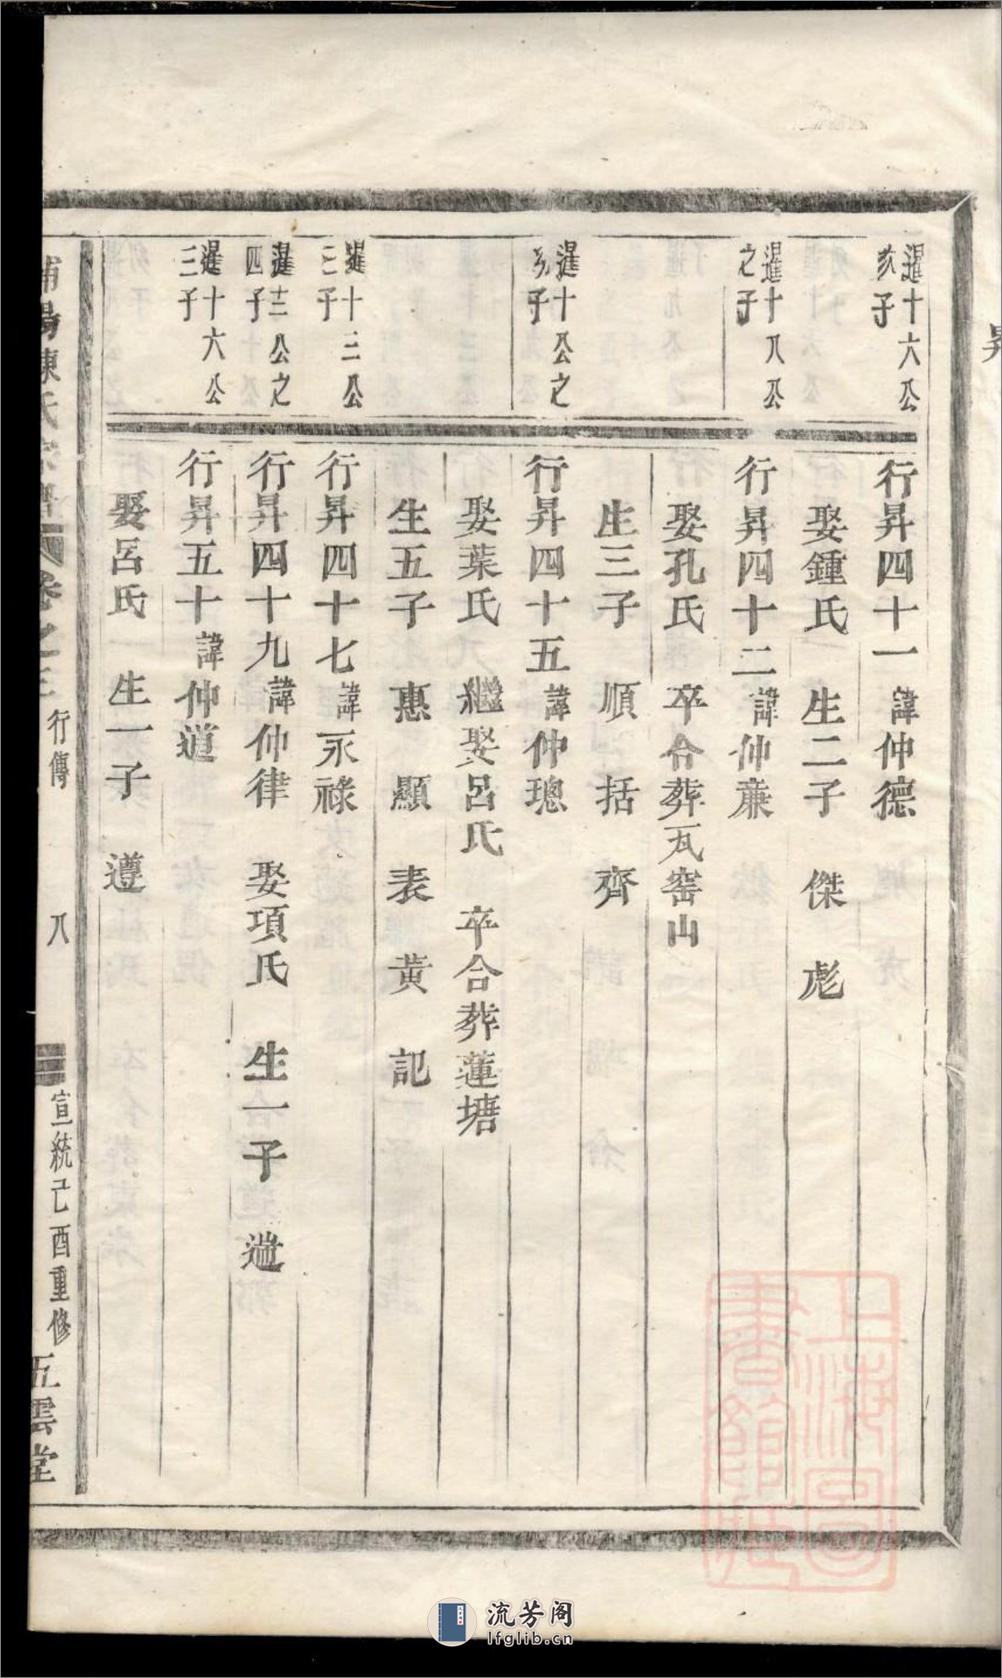 昇
暹十六公
次子
行昇四十一諱仲德
娶鍾氏 生二子 傑 彪
暹十八公
之子
行昇四十二諱仲亷
娶孔氏 卒合葬瓦窑山
生三子 順 括 齊
暹十公之
次子
行昇四十五諱仲璁
娶葉氏 繼娶呂氏 卒合葬蓮塘
生五子 惠 顯 表 黄 記
暹十三公
三子
行昇四十七諱永祿
暹十三公之
四子
行昇四十九諱仲律 娶項氏 生一子 逾
暹十六公
三子
行昇五十諱仲道
娶呂氏 生一子 遵
浦陽陳氏宗譜 卷之三 行傳 八 宣統己酉重修 五雲堂
上海圖
書館藏
流芳阁
lfglib.cn